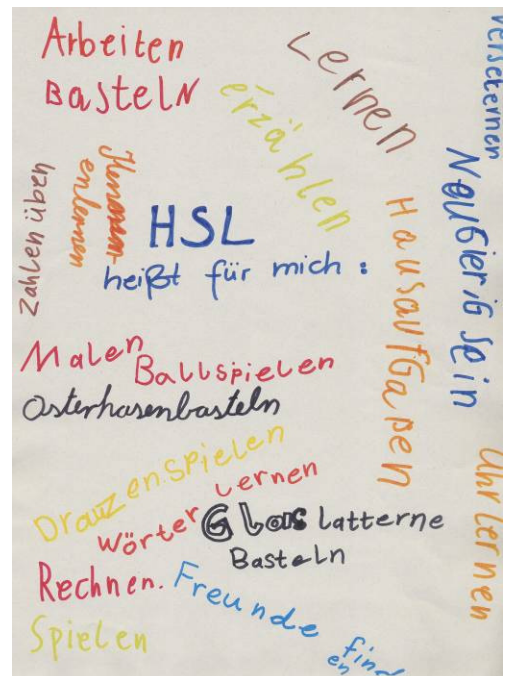 Arbeiten
BasteLN
Lernen
erzählen
verseternen
Neugierig sein
Zahlen üben
enlernen
HSL
heißt für mich :
HausaufGaben
Malen
Ballspielen
Osterhasenbasteln
Drauzenspielen
Wörter Lernen
Glas Latterne
Basteln
Uhr Lernen
Rechnen.
Freunde find
en
Spielen